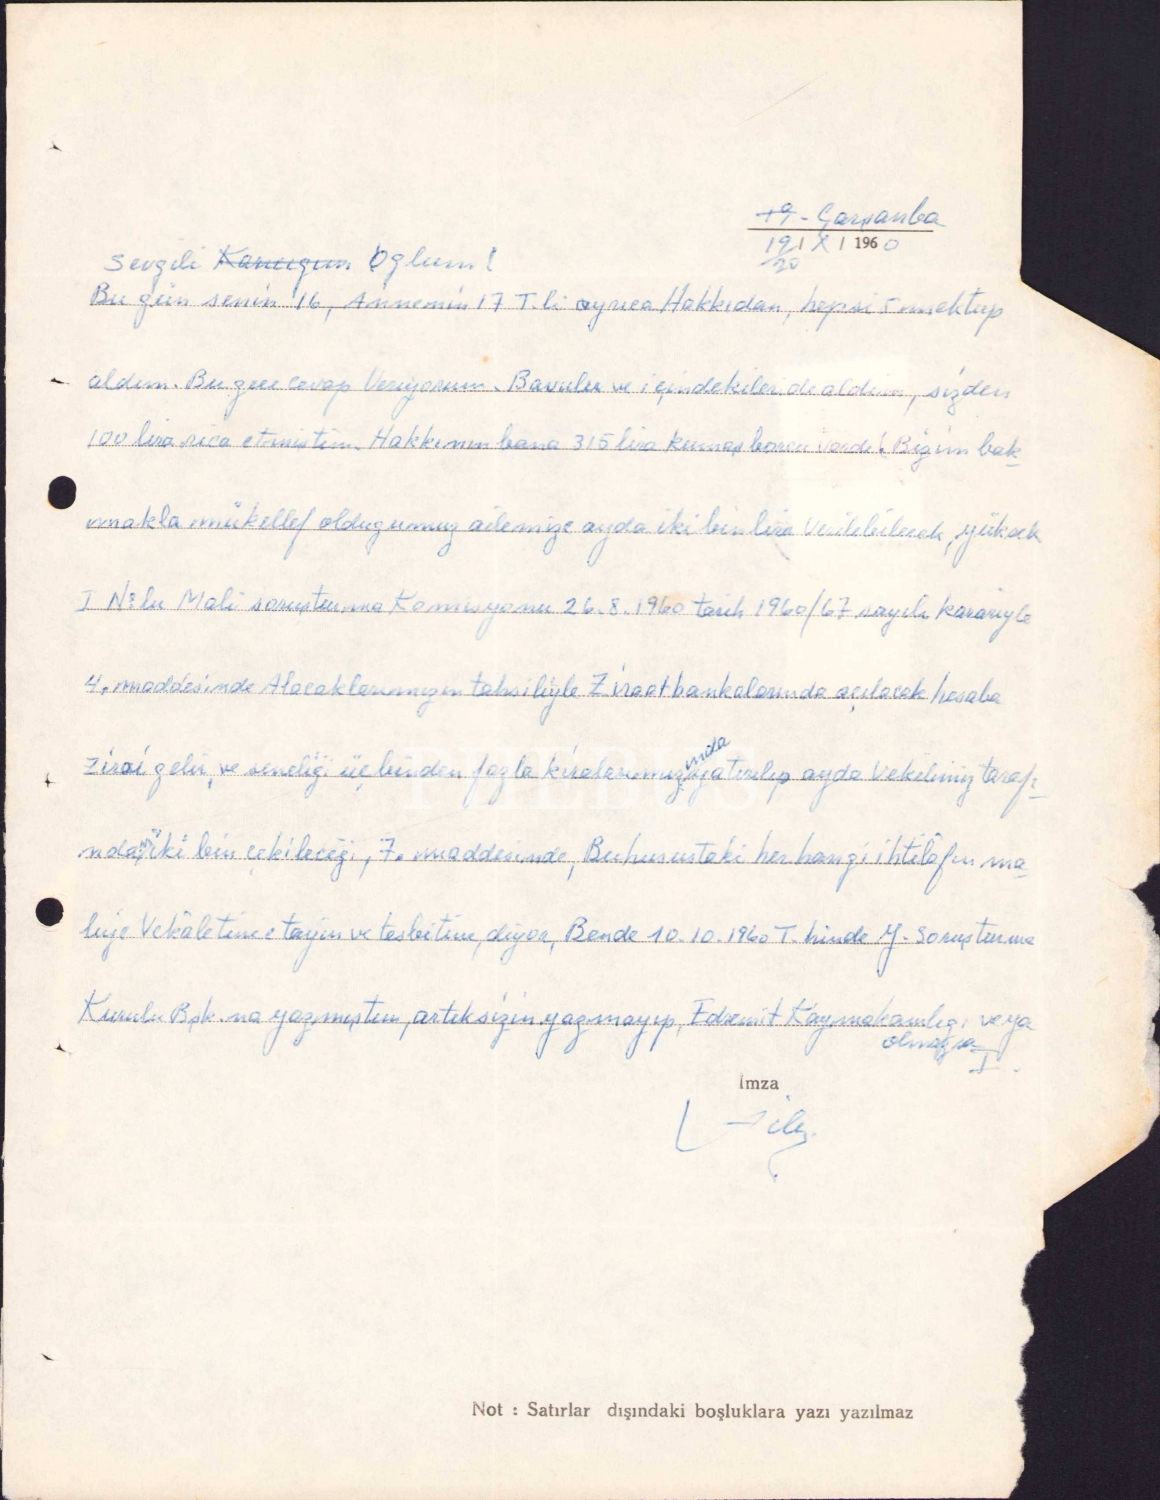 19 - Çarşanba
19/20 / X / 1960
Sevgili Karıcığım Oğlum!
Bu gün senin 16, Annemin 17 T.li ayrıca Hakkıdan, hepsi 5 mektup
aldım. Bu gece cevap Veriyorum. Bavulu ve içindekileride aldım, sizden
100 lira rica etmiştim. Hakkının bana 315 lira kumaş borcu Vardı! Bizim bak-
makla mükellef oldugumuz ailemize ayda iki bin lira Verilebilecek, yüksek
I No:lu Mali soruşturma Komisyonu 26.8.1960 tarih 1960/67 sayılı kararıyle
4. maddesinde Alacaklarımızın tahsiliyle Ziraat bankalarında açılacak hesaba
Zirai gelir, ve seneliği üç binden fazla kiralarımızında yatırılıp ayda Vekilimiz tarafı-
ndan iki bin çekileceği, 7. maddesinde, Bu husustaki her hangi ihtilâfın ma-
liye Vekâletince tayin ve tesbitine, diyor, Bende 10.10.1960 T.hinde Y. Soruşturma
Kurulu Bşk.na yazmıştım, artık sizin yazmayıp, Edremit Kaymakamlığı veya
olmazsa
I.
İmza
PHEBUS
Not : Satırlar dışındaki boşluklara yazı yazılmaz